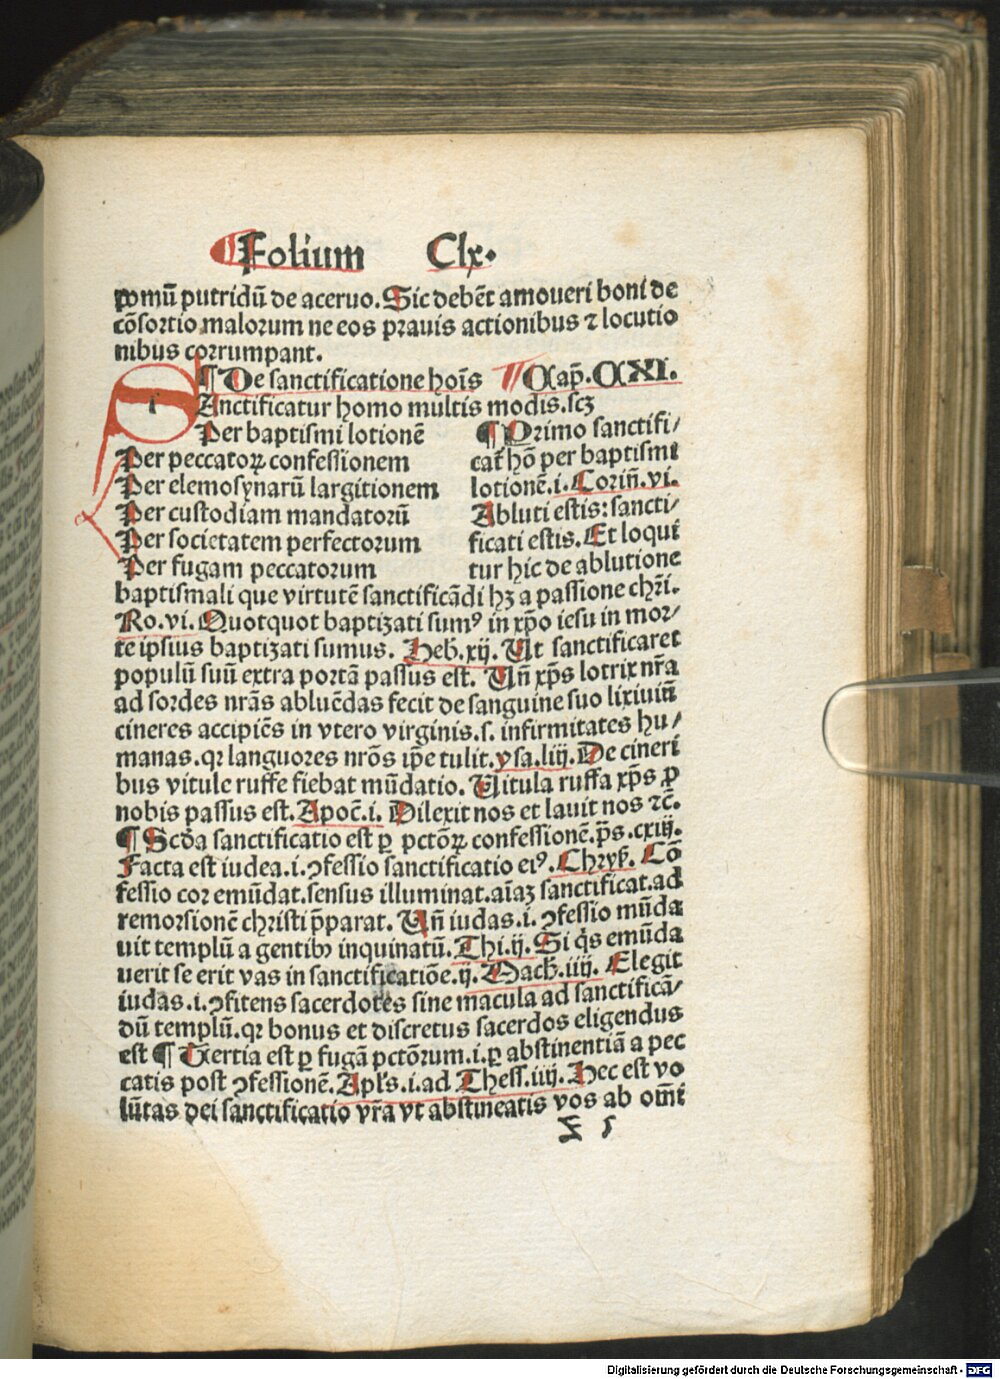 ¶Folium Clx.
pomū putridū de aceruo. Sic debēt amoueri boni de
cōsortio malorum ne eos prauis actionibus ⁊ locutio
nibus corrumpant.
¶ De sanctificatione hoīs ¶ Cap̄. CXXI.
SAnctificatur homo multis modis. scꝫ
Per baptismi lotionē
Per peccatoꝝ confessionem
Per elemosynarū largitionem
Per custodiam mandatorū
Per societatem perfectorum
Per fugam peccatorum
¶ Primo sanctifi/
cat̄ hō per baptismi
lotionē. i. Corin̄. vi.
Abluti estis: sancti-
ficati estis. Et loqui
tur hic de ablutione
baptismali que virtutē sanctificādi hꝫ a passione chr̄i.
Ro. vi. Quotquot baptizati sumꝰ in xp̄o iesu in mor/
te ipsius baptizati sumus. Heb̄. xij. Ut sanctificaret
populū suū extra portā passus est. Un̄ xp̄s lotrix nr̄a
ad sordes nr̄as abluēdas fecit de sanguine suo lixiuiū
cineres accipiēs in vtero virginis. s. infirmitates hu/
manas. qꝛ languores nr̄os ip̄e tulit. ysa. liij. De cineri
bus vitule ruffe fiebat mūdatio. Uitula ruffa xp̄s ꝑ
nobis passus est. Apoc̄. i. Dilexit nos et lauit nos ⁊c̄.
¶ Scd̄a sanctificatio est ꝑ pctōꝝ confessionē. p̄s. cxiij.
Facta est iudea. i. ꝯfessio sanctificatio eiꝰ. Chryẜ. Cō
fessio cor emūdat. sensus illuminat. aīaꝫ sanctificat. ad
remorsionē christi p̄parat. Un̄ iudas. i. ꝯfessio mūda
uit templū a gentibꝫ inquinatū. Thi. ij. Si q̇s emūda
uerit se erit vas in sanctificatiōe. ij. Mach̄. iiij. Elegit
iudas. i. ꝯfitens sacerdotes sine macula ad sanctificā/
dū templū. qꝛ bonus et discretus sacerdos eligendus
est ¶ Tertia est ꝑ fugā pctōrum. i. ꝑ abstinentiā a pec
catis post ꝯfessionē. Apl̄s. i. ad Thess. iiij. Hec est vo
lūtas dei sanctificatio vr̄a vt abstineatis vos ab om̄i
Digitalisierung gefördert durch die Deutsche Forschungsgemeinschaft - DFG